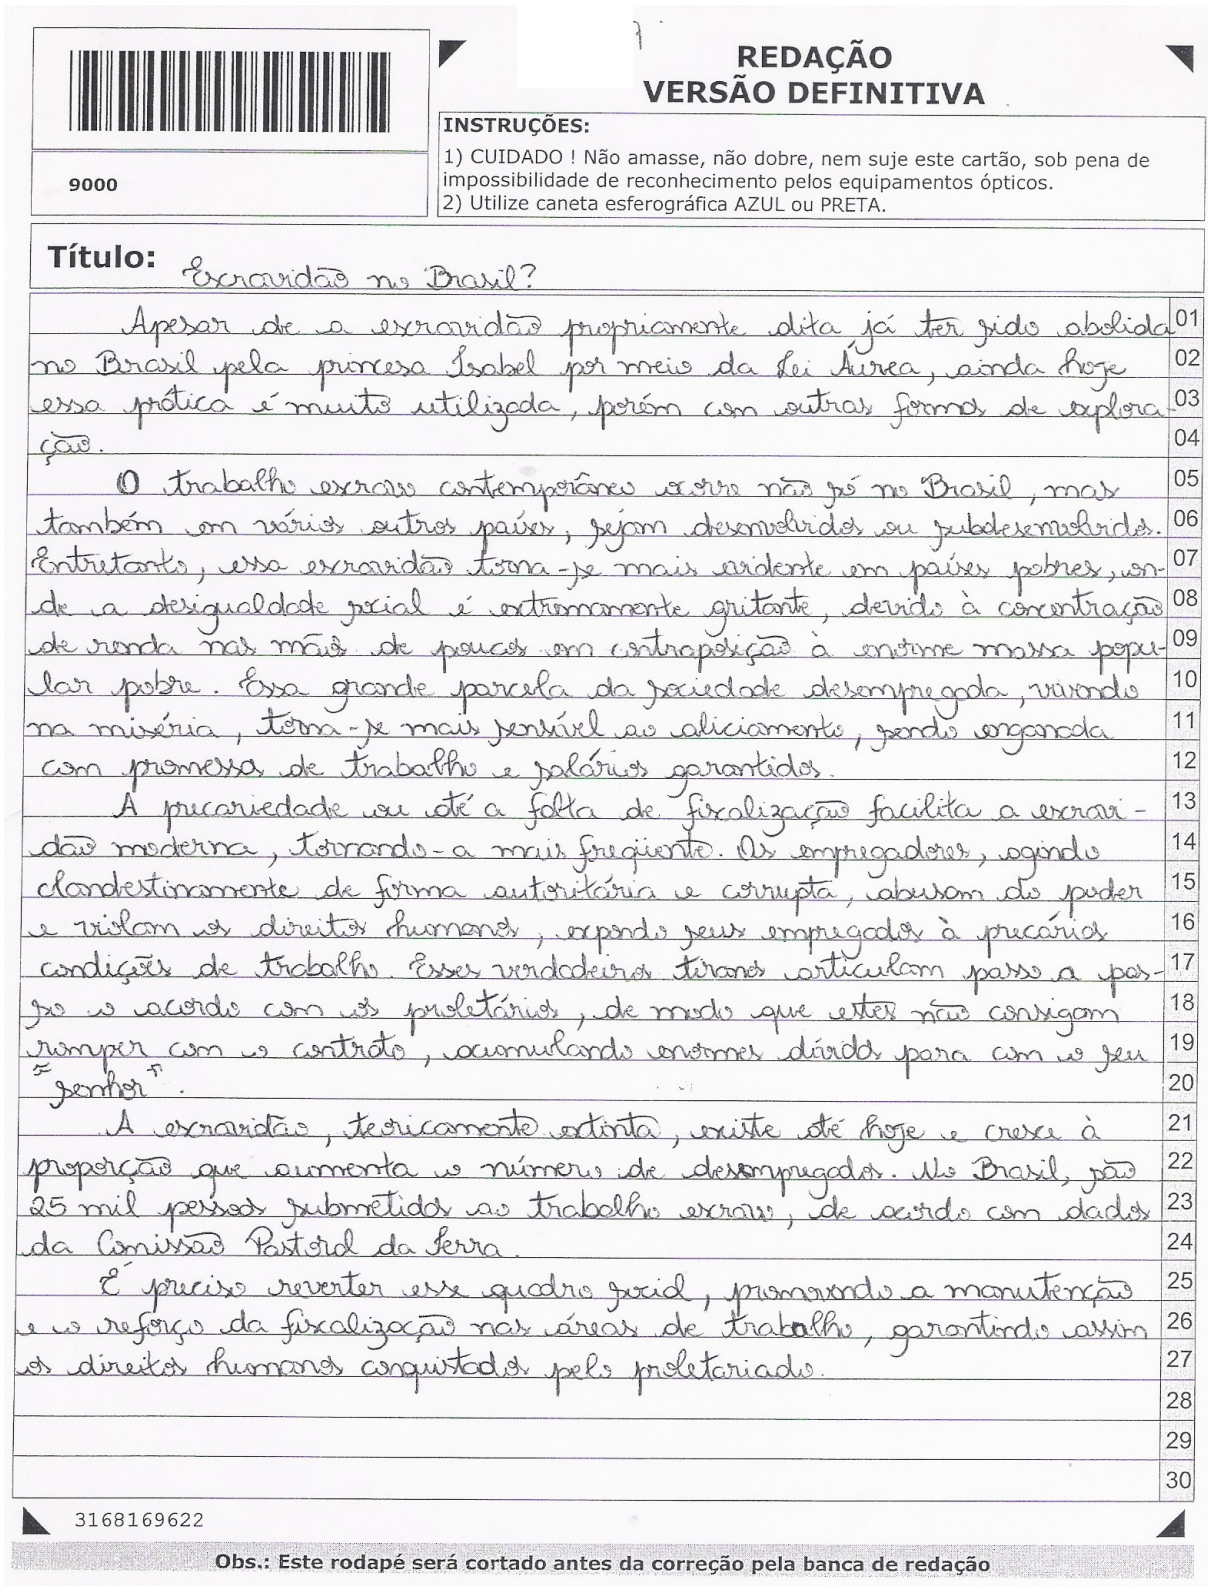 REDAÇÃO
VERSÃO DEFINITIVA
INSTRUÇÕES:
1) CUIDADO ! Não amasse, não dobre, nem suje este cartão, sob pena de
impossibilidade de reconhecimento pelos equipamentos ópticos.
2) Utilize caneta esferográfica AZUL ou PRETA.
9000
Título: Escravidão no Brasil?
Apesar de a escravidão propriamente dita já ter sido abolida 01
no Brasil pela princesa Isabel por meio da Lei Áurea, ainda hoje 02
essa prática é muito utilizada, porém com outras formas de explora- 03
ção. 04
O trabalho escravo contemporâneo ocorre não só no Brasil, mas 05
também em vários outros países, sejam desenvolvidos ou subdesenvolvidos. 06
Entretanto, essa escravidão torna-se mais evidente em países pobres, on- 07
de a desigualdade social é extremamente gritante, devido à concentração 08
de renda nas mãos de poucos em contraposição à enorme massa popu- 09
lar pobre. Essa grande parcela da sociedade desempregada, vivendo 10
na miséria, torna-se mais sensível ao aliciamento, sendo enganada 11
com promessa de trabalho e salários garantidos. 12
A precariedade ou até a falta de fiscalização facilita a escravi- 13
dão moderna, tornando-a mais freqüente. Os empregadores, agindo 14
clandestinamente de forma autoritária e corrupta, abusam do poder 15
e violam os direitos humanos, expondo seus empregados à precárias 16
condições de trabalho. Esses verdadeiros tiranos articulam passo a pas- 17
so o acordo com os proletários, de modo que estes não consigam 18
romper com o contrato, acumulando enormes dívidas para com o seu 19
"senhor". 20
A escravidão, teoricamente extinta, existe até hoje e cresce à 21
proporção que aumenta o número de desempregados. No Brasil, são 22
25 mil pessoas submetidas ao trabalho escravo, de acordo com dados 23
da Comissão Pastoral da Terra. 24
É preciso reverter esse quadro social, promovendo a manutenção 25
e o reforço da fiscalização nas áreas de trabalho, garantindo assim 26
os direitos humanos conquistados pelo proletariado. 27
28
29
30
3168169622
Obs.: Este rodapé será cortado antes da correção pela banca de redação